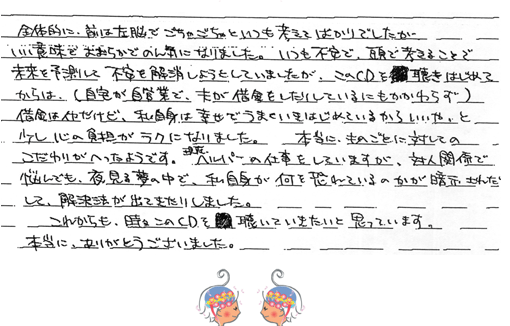 全体的に、前は左脳でごちゃごちゃといつも考えてばかりでしたが
いい意味でおおらかでのん気になりました。いつも不安で、頭で考えることで
未来を予測して不安を解消しようとしていましたが、このCDを聴きはじめて
からは、(自宅が自営業で、夫が借金をしたりしているにもかかわらず)
借金は仕方ないけど、私自身は幸せでうまくいきはじめているからいいや、と
少し心の負担がラクになりました。 本当に、ものごとに対しての
こだわりがへったようです。現在、ヘルパーの仕事をしていますが、対人関係で
悩んでも、夜見る夢の中で、私自身が何を恐れているのかが暗示されたり
して、解決法が出てきたりしました。
これからも、時々このCDを聴いていきたいと思っています。
本当に、ありがとうございました。